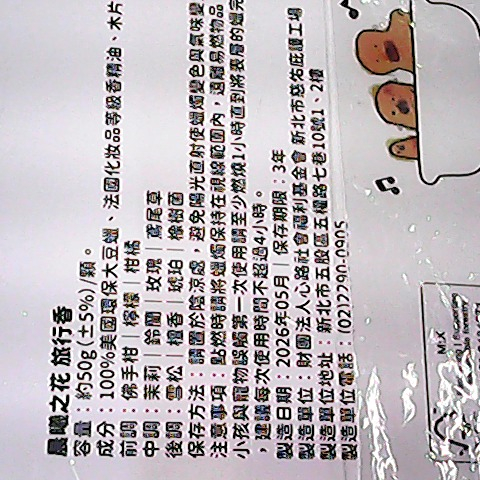 晨曦之花 旅行香
容量：約50g(±5%)/顆。
成分：100%美國環保大豆蠟、法國化妝品等級香精油、木片
前調：佛手柑｜檸檬｜柑橘
中調：茉莉｜鈴蘭｜玫瑰｜鳶尾草
後調：雪松｜檀香｜琥珀｜橡樹菌
保存方法：請置於陰涼處，避免陽光直射使蠟燭變色與氣味變
注意事項：點燃時請將蠟燭保持在視線範圍內，遠離易燃物品
小孩與寵物誤觸第一次使用請至少燃燒1小時直到將表層的蠟完
，建議每次使用時間不超過4小時。
製造日期：2026年05月｜保存期限：3年
製造單位：財團法人心路社會福利基金會 新北市慈佑庇護工場
製造單位地址：新北市五股區五權路七巷10號1、2樓
製造單位電話：(02)2290-0905
MIX